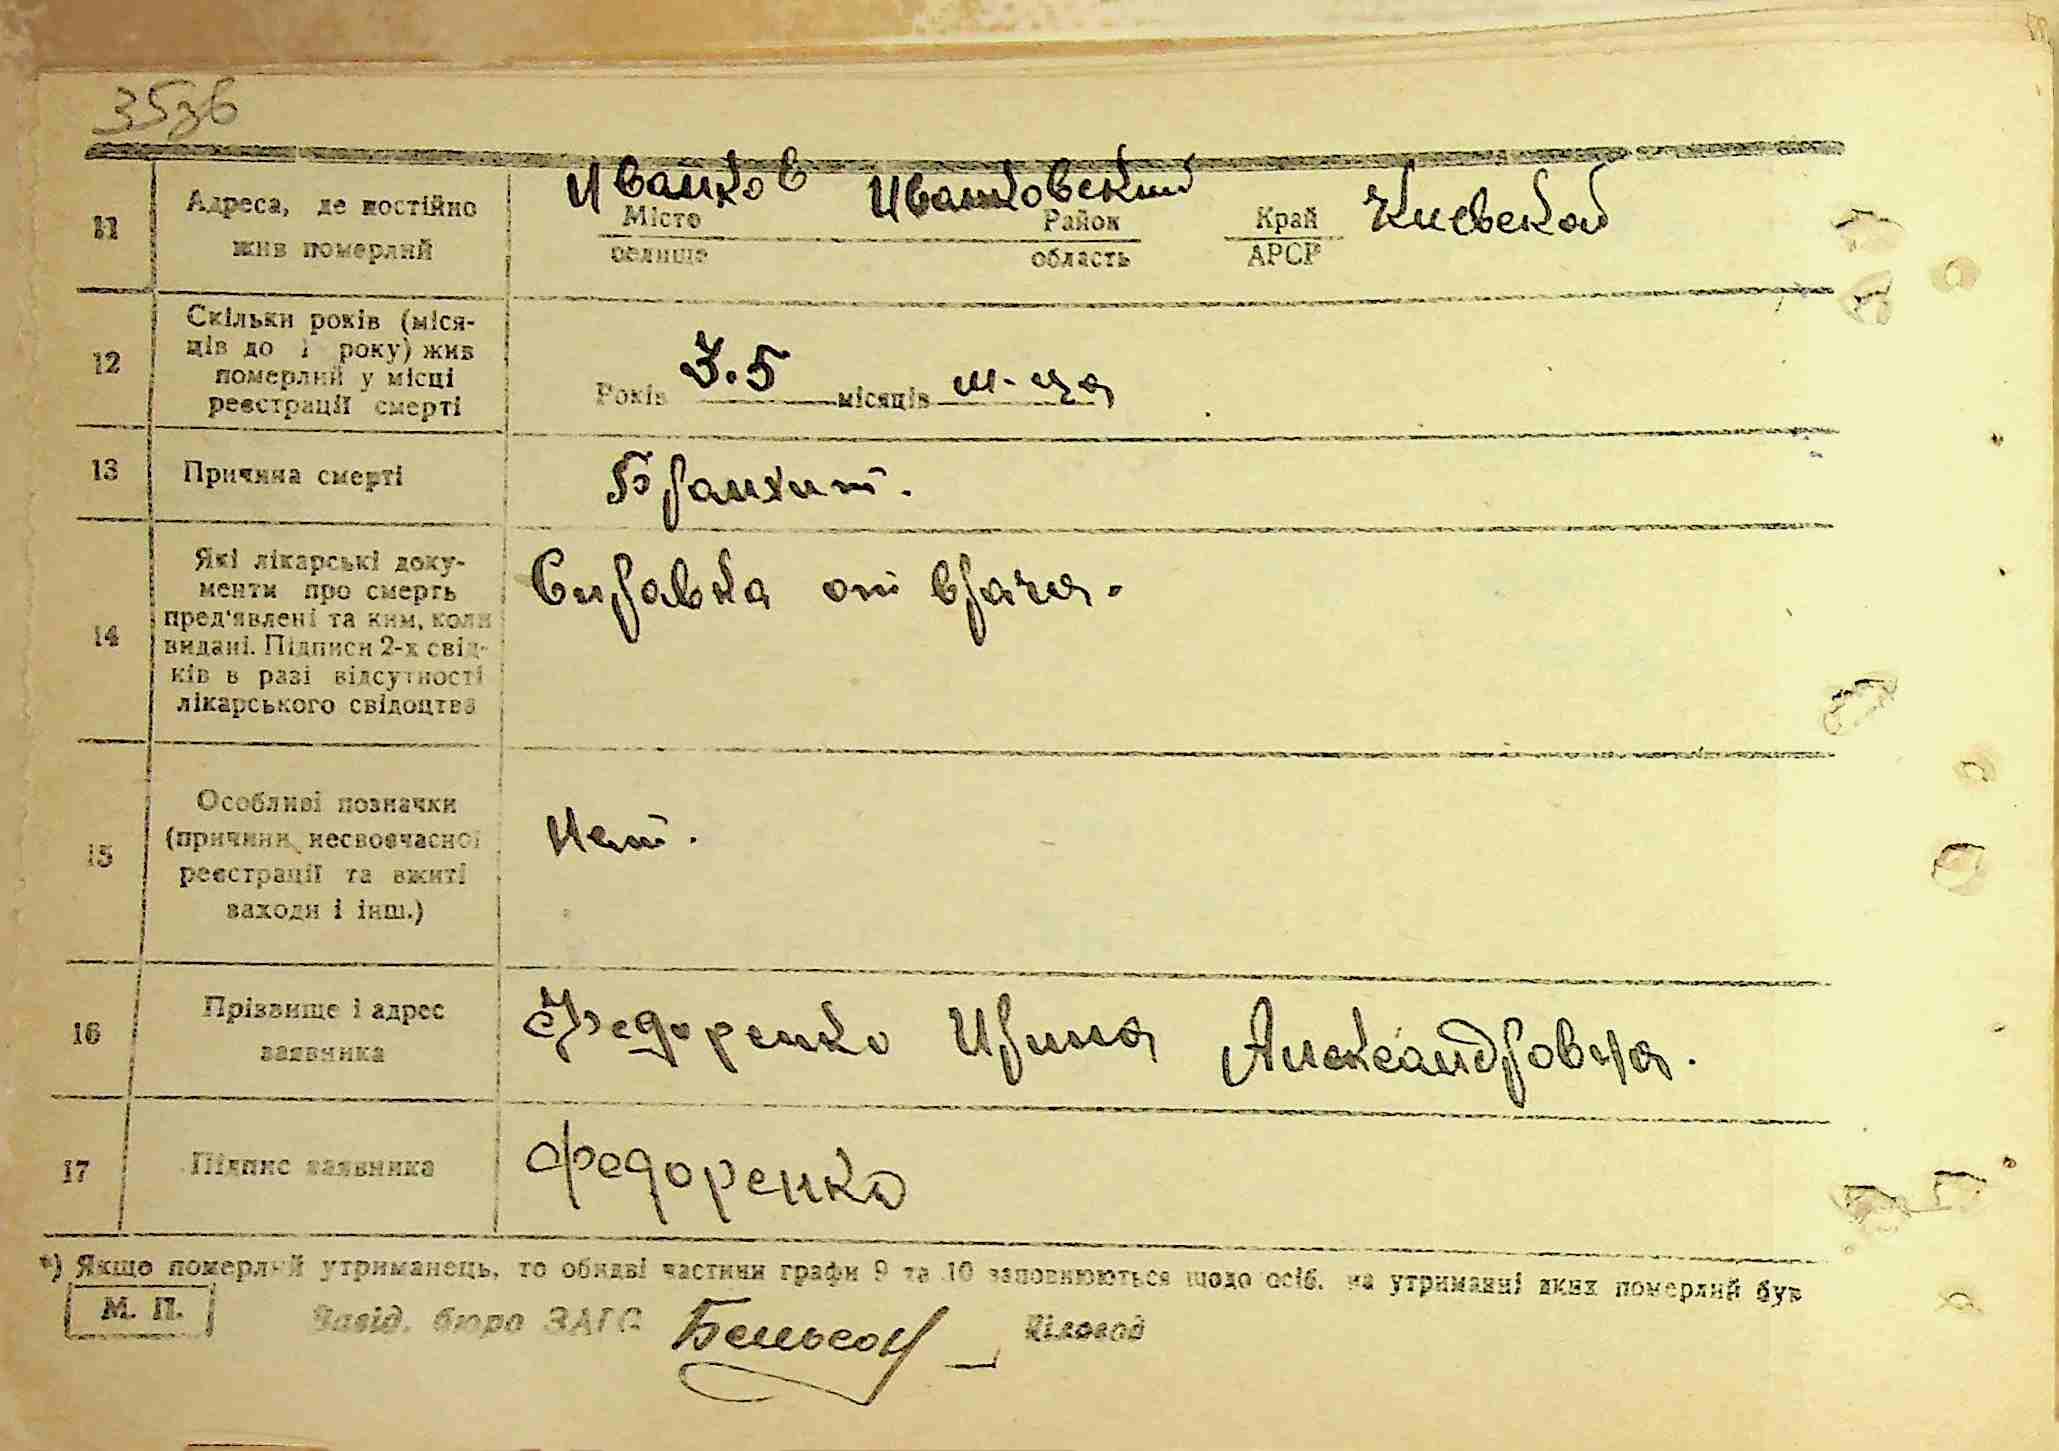 35зв
11 Адреса, де постійно жив померлий
Иванков Иванковский Киевской
Місто Район Край
селище область АРСР
12 Скільки років (міся-
ців до 1 року) жив
померлий у місці
реєстрації смерті
Років 3.5 місяців м-ца
13 Причина смерті Бранхит.
14 Які лікарські доку-
менти про смерть
пред'явлені та ким, коли
видані. Підписи 2-х свід-
ків в разі відсутності
лікарського свідоцтва
Справка от врача.
15 Особливі позначки
(причини несвоєчасної
реєстрації та вжиті
заходи і інш.)
Нет.
16 Прізвище і адрес
заявника
Федоренко Ирина Александровна.
17 Підпис заявника Федоренко
*) Якщо померлий утриманець, то обидві частини графи 9 та 10 заповнюються щодо осіб, на утриманні яких померлий був
М. П. Завід. бюро ЗАГС Діловод